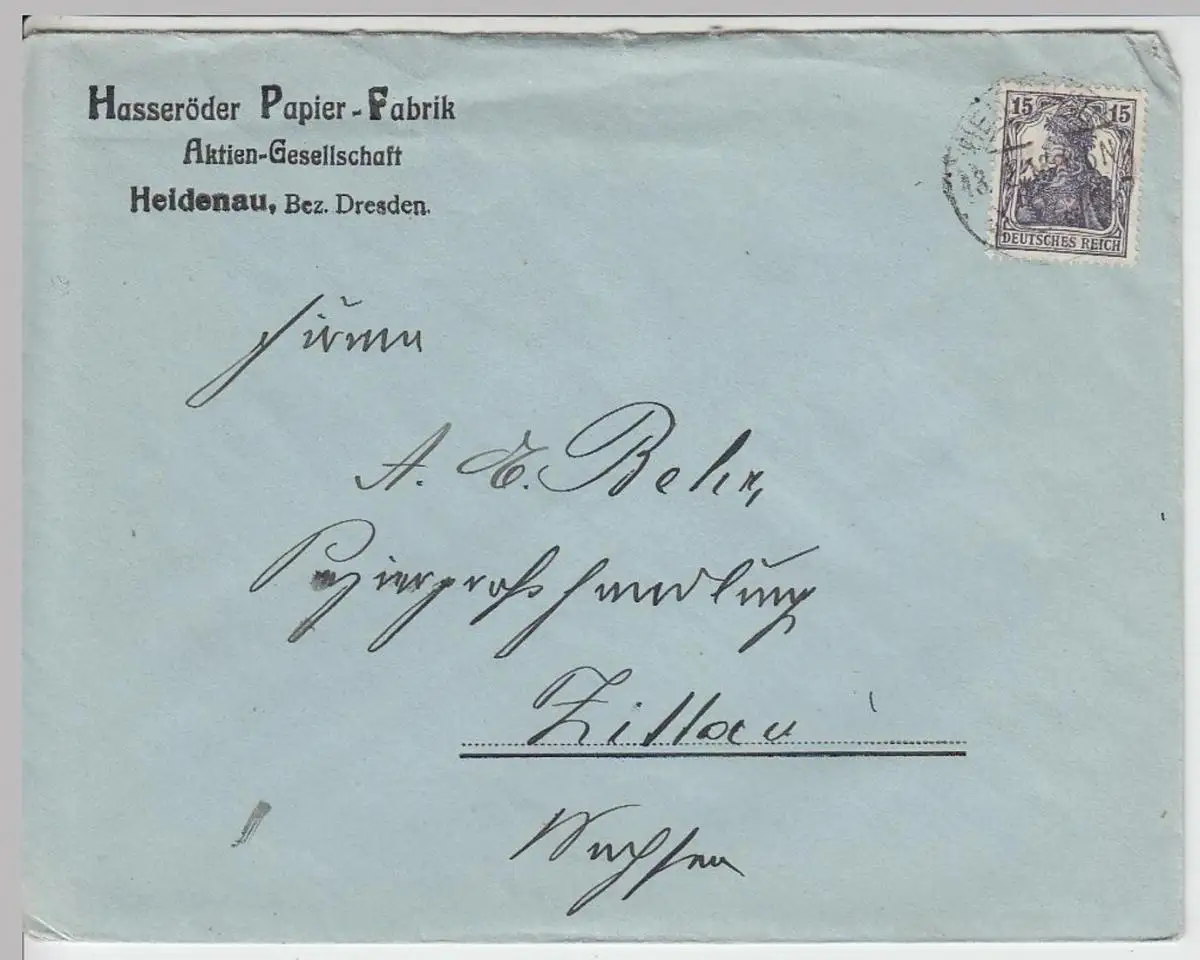 Hasseröder Papier-Fabrik
Aktien-Gesellschaft
Heidenau, Bez. Dresden.
15 15
DEUTSCHES REICH
Firma
A. E. Behr,
Papiergroßhandlung
Zittau
Sachsen